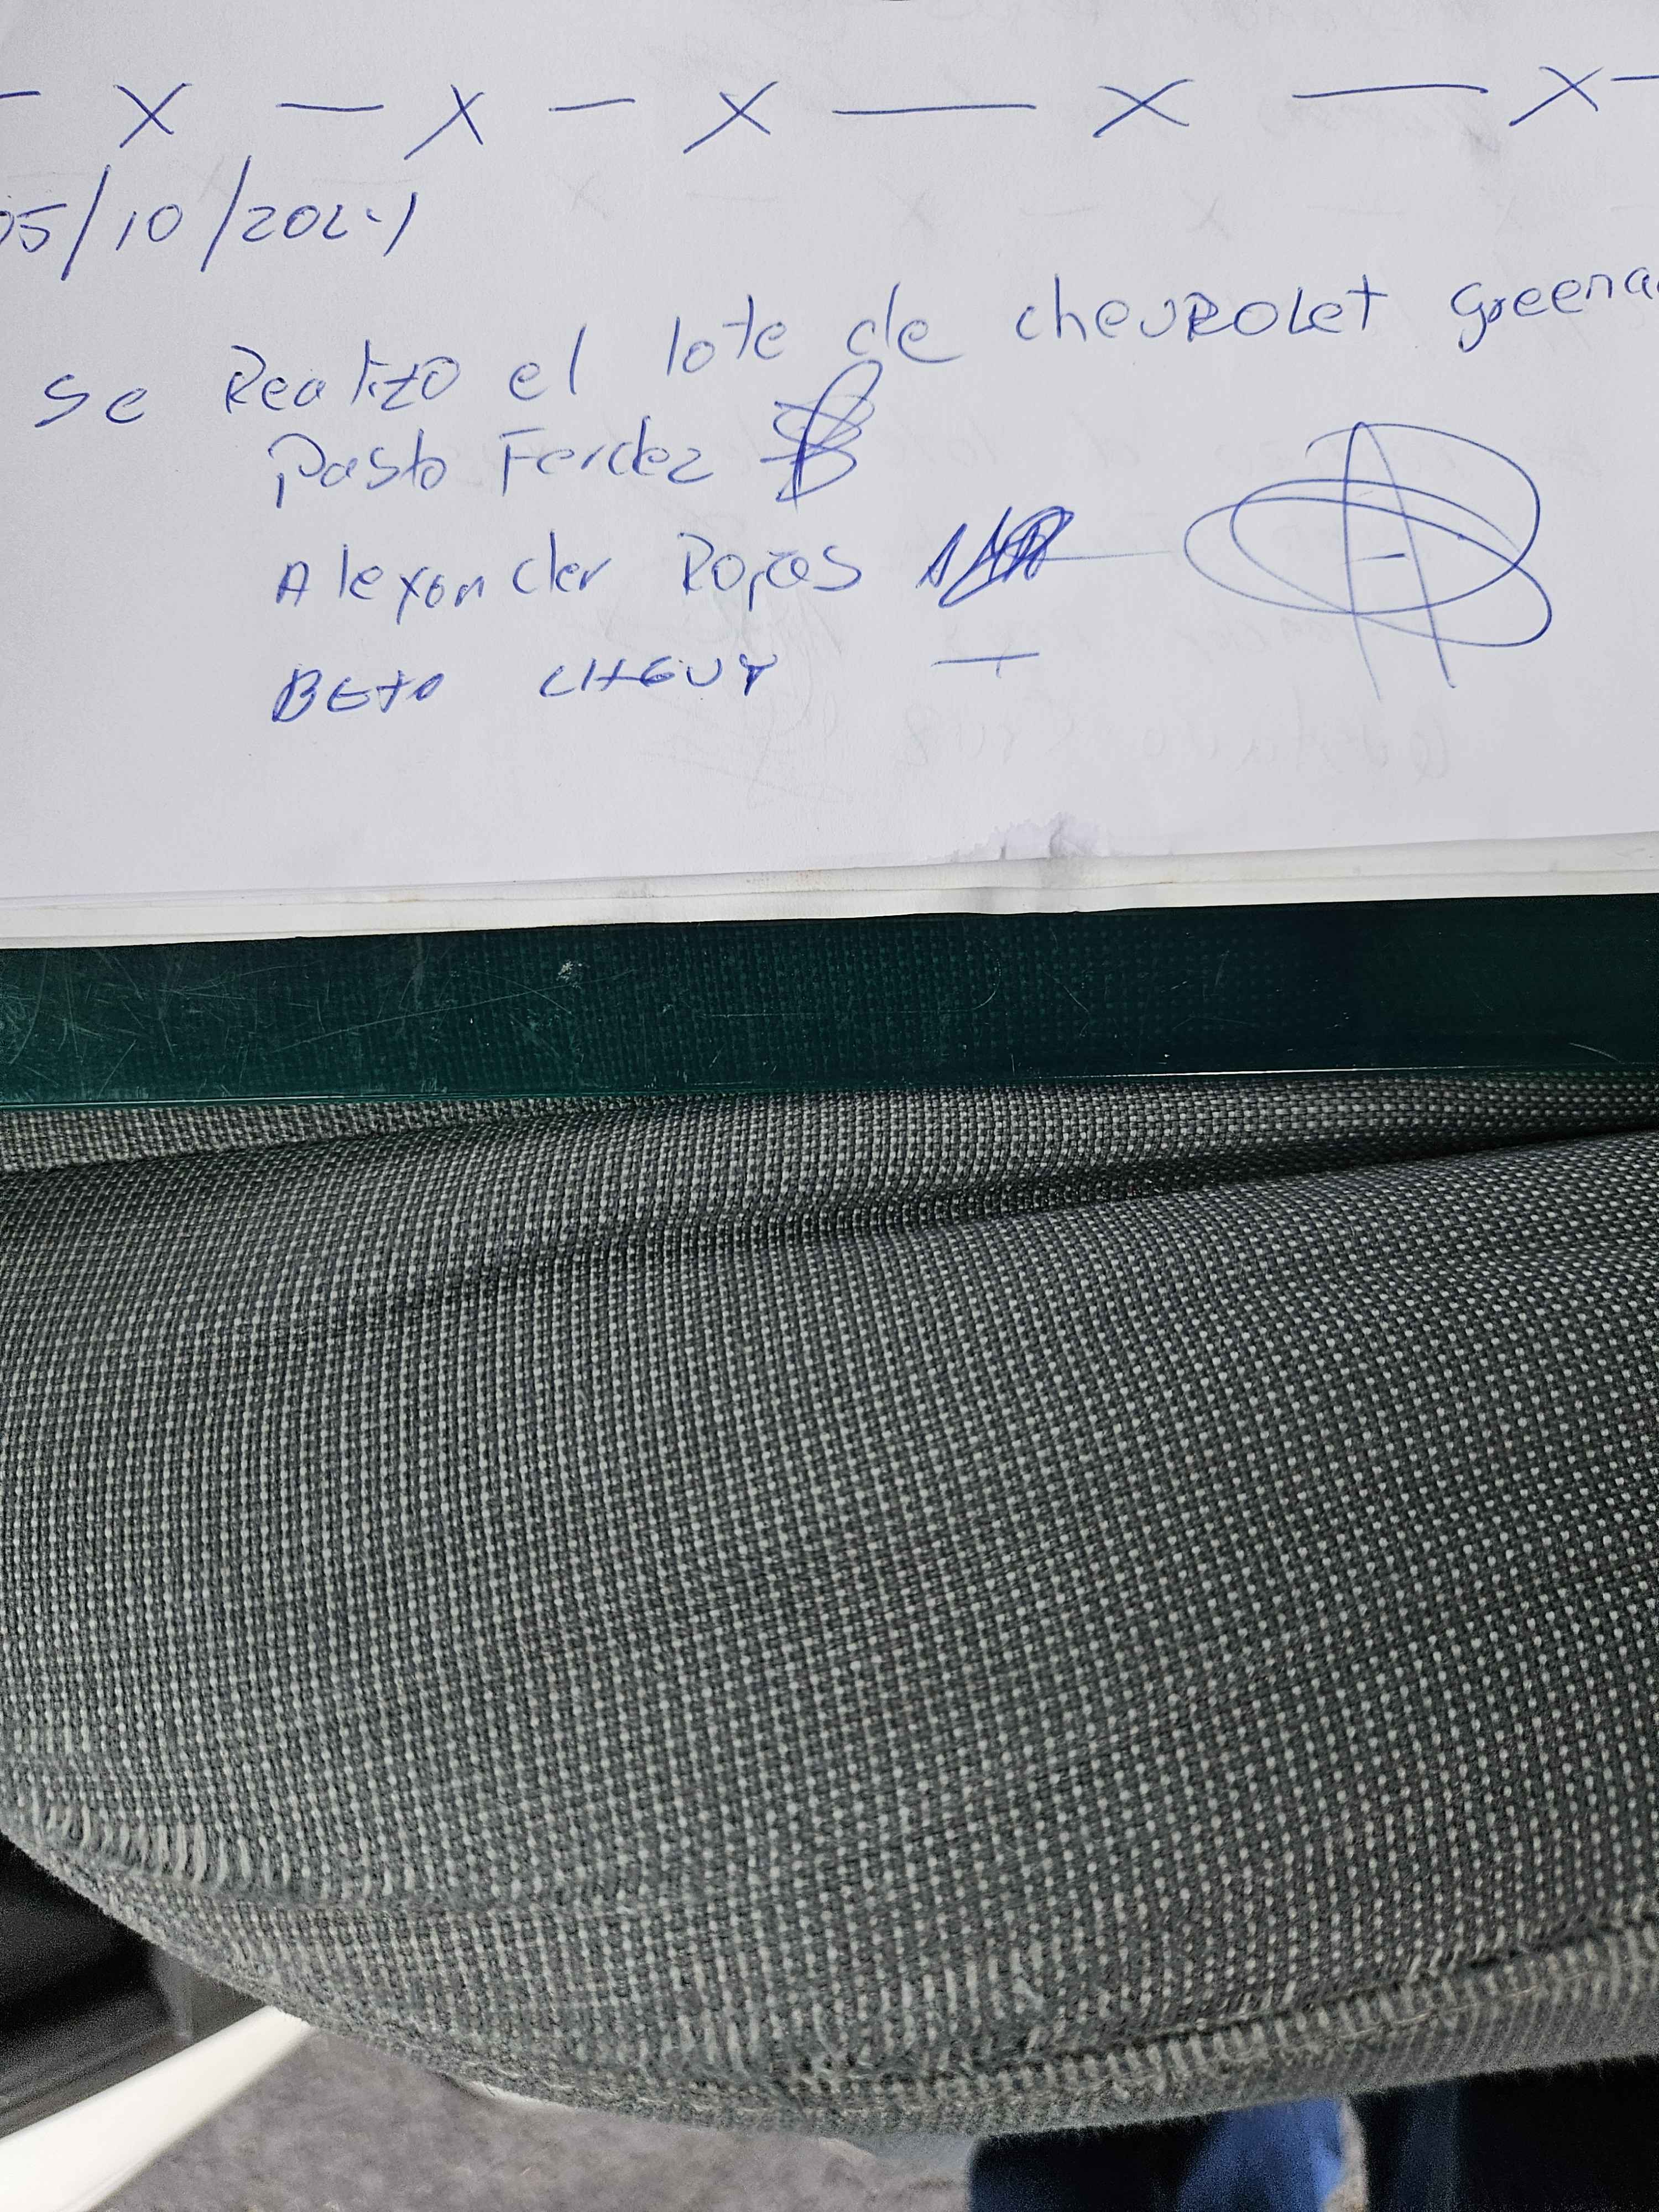 — X — X — X — X — X —
05/10/2024
se Realizo el lote de chevROLet greena
Pasto Ferdez
Alexander Rojas
BETO CHEVY